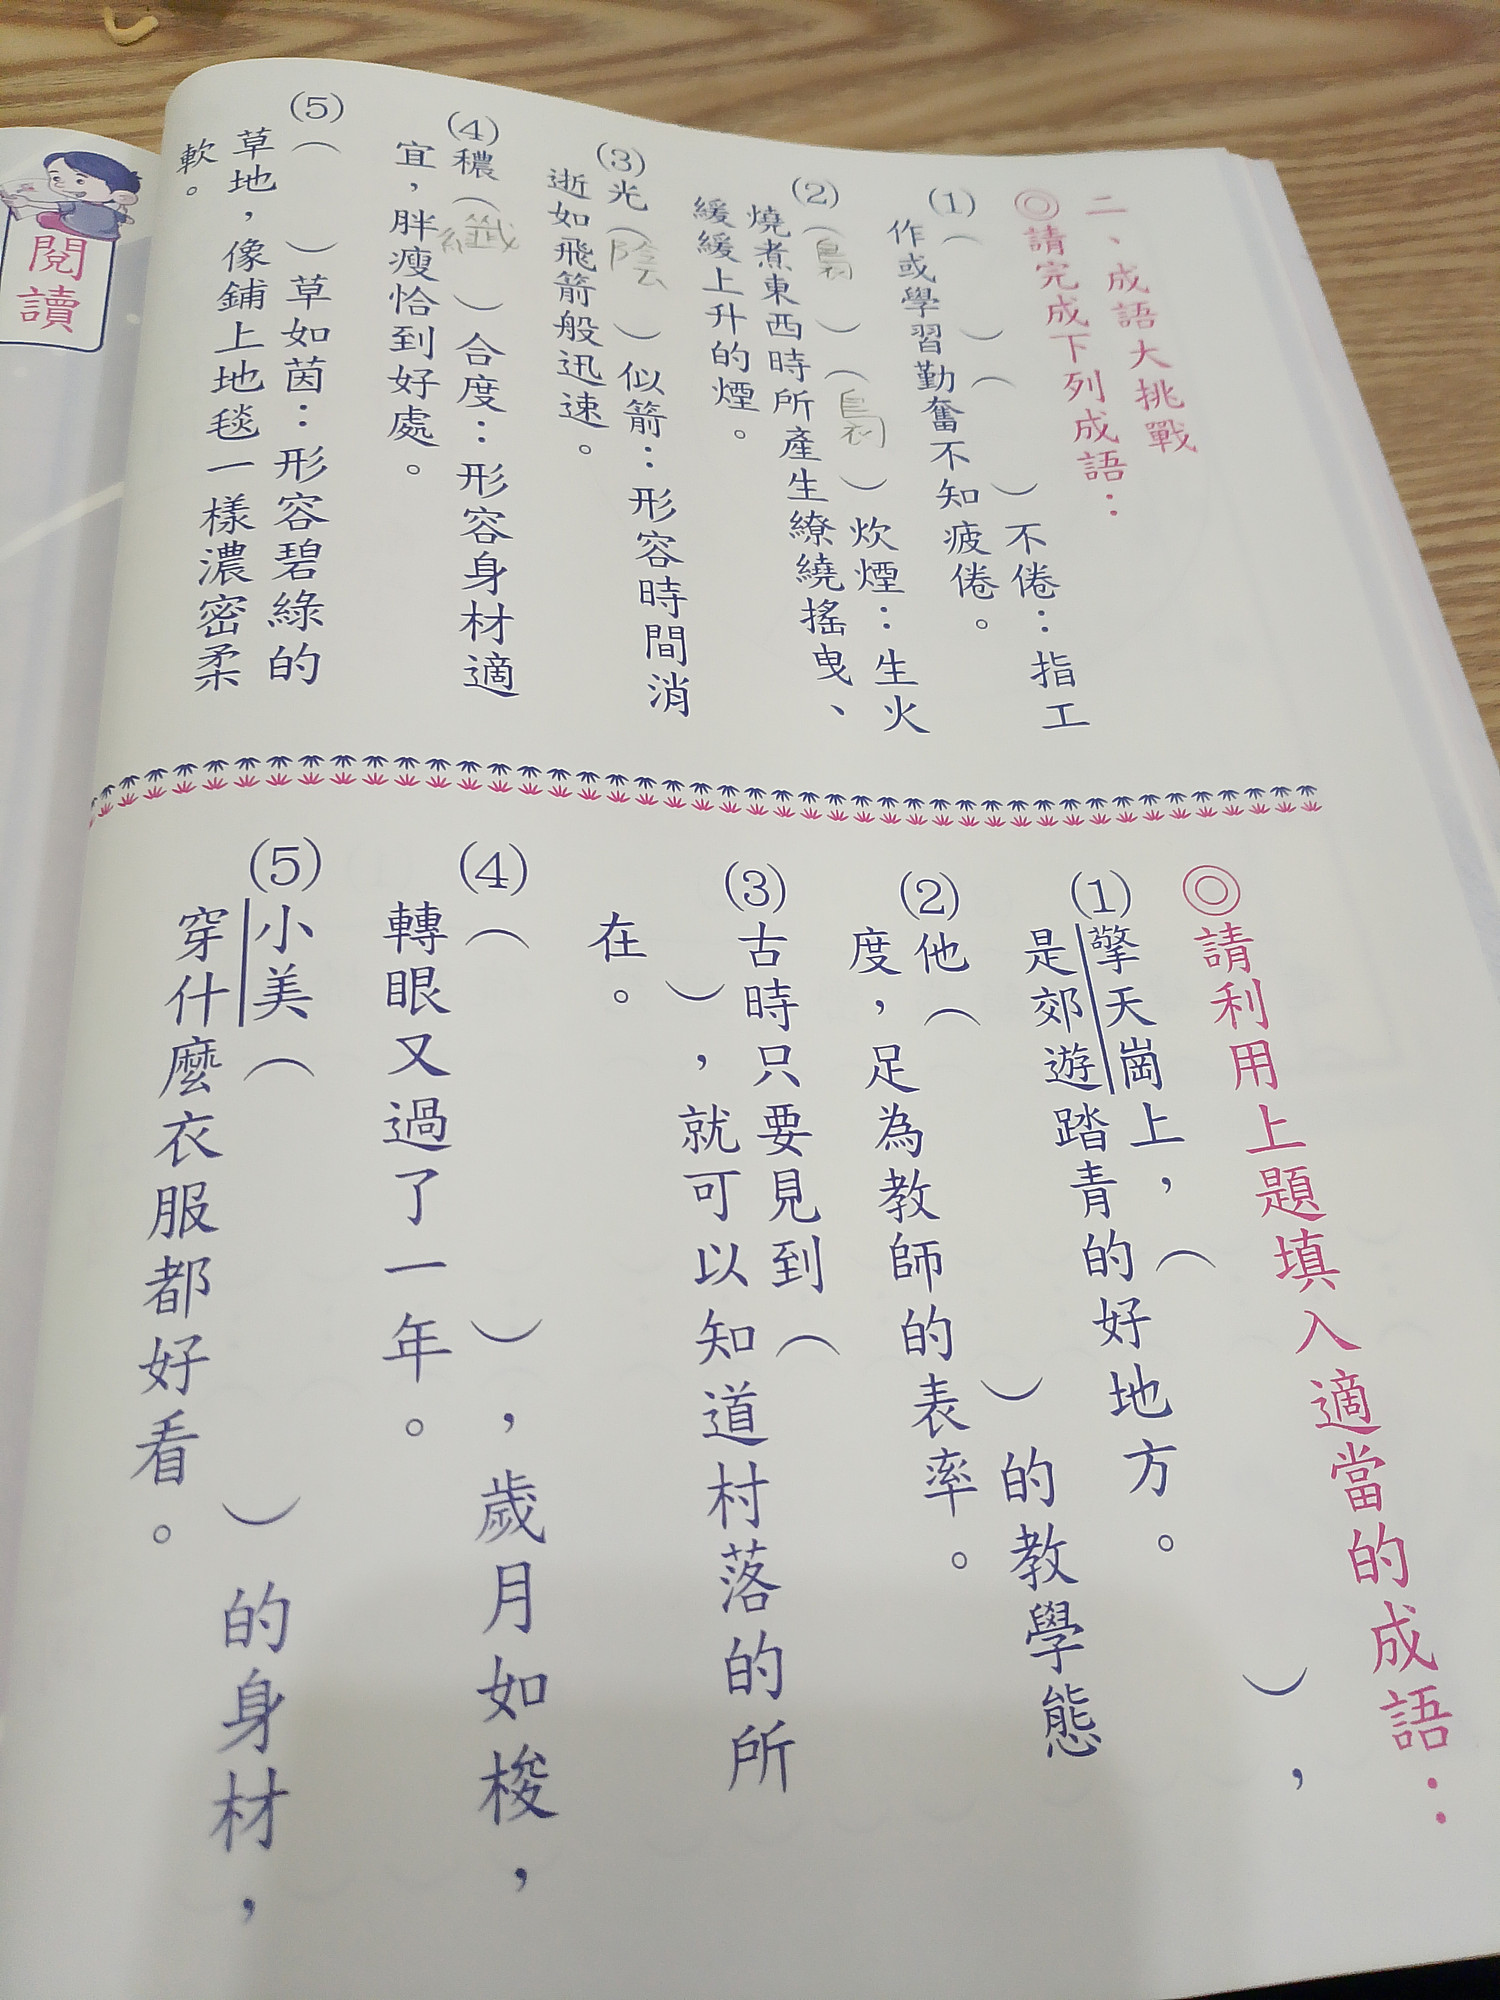 二、成語大挑戰
◎請完成下列成語：
(1)（　）（　）不倦：指工
作或學習勤奮不知疲倦。
(2)（裊）（裊）炊煙：生火
燒煮東西時所產生繚繞搖曳、
緩緩上升的煙。
(3)光（陰）似箭：形容時間消
逝如飛箭般迅速。
(4)穠（纖）合度：形容身材適
宜，胖瘦恰到好處。
(5)（　）草如茵：形容碧綠的
草地，像鋪上地毯一樣濃密柔
軟。
◎請利用上題填入適當的成語：
(1)擎天崗上，（　），
是郊遊踏青的好地方。
(2)他（　）的教學態
度，足為教師的表率。
(3)古時只要見到（
），就可以知道村落的所
在。
(4)（　），歲月如梭，
轉眼又過了一年。
(5)小美（　）的身材，
穿什麼衣服都好看。
閱讀